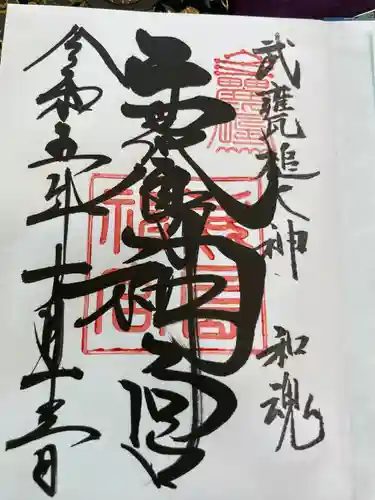 武甕槌大神 和魂
鹿島神宮
令和五年十月十三日